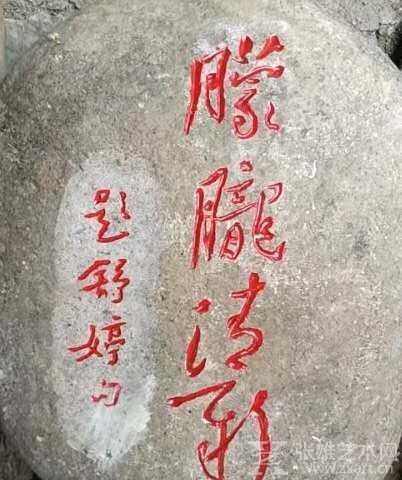 朦朧清新
題舒婷句
张雄艺术网
www.zxart.cn